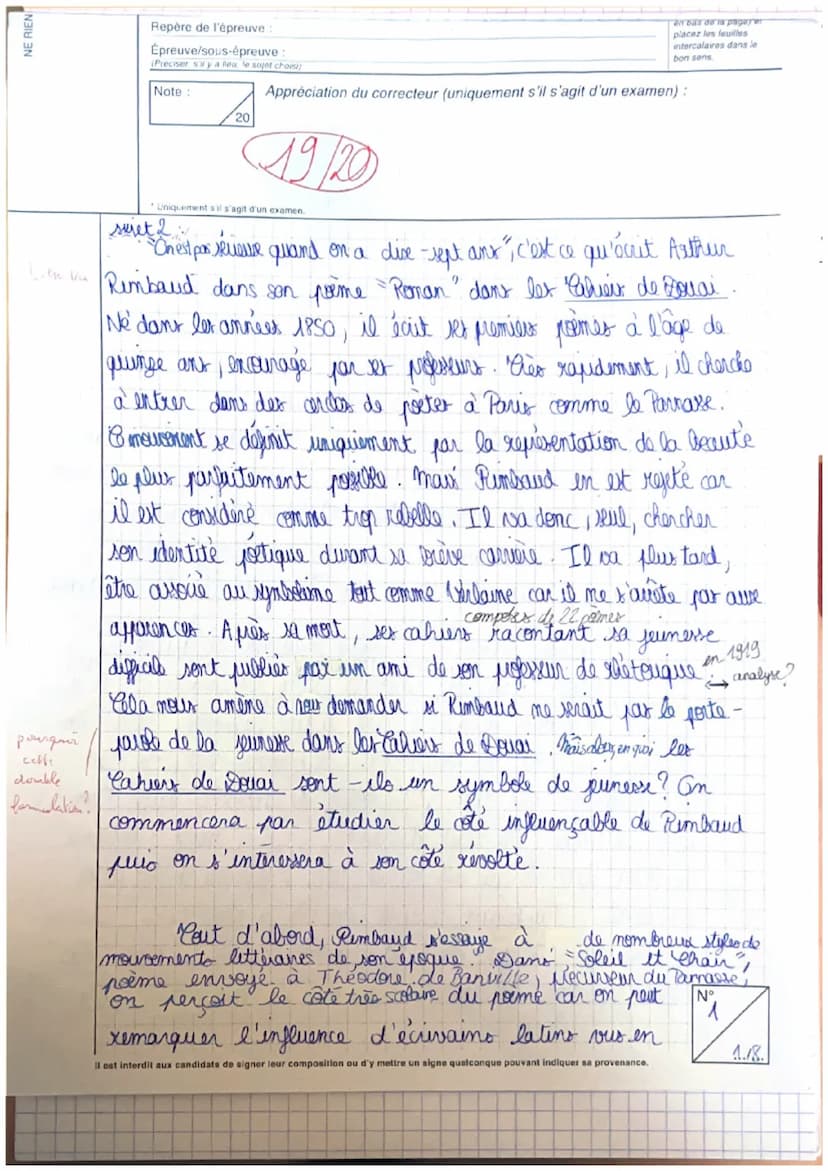 NE RIEN
Repère de l'épreuve :
Épreuve/sous-épreuve :
(Préciser, s'il y a lieu, le sujet choisi)
en bas de la page) et
placez les feuilles
intercalaires dans le
bon sens.
Note :
20
Appréciation du correcteur (uniquement s'il s'agit d'un examen) :
19/20
* Uniquement s'il s'agit d'un examen.
sujet 2 :
"On est pas sérieux quand on a dix-sept ans", c'est ce qu'écrit Arthur
Rimbaud dans son poème "Roman" dans les Cahiers de Douai.
Né dans les années 1850, il écrit ses premiers poèmes à l'âge de
quinze ans, encouragé par ses professeurs. Très rapidement, il cherche
à entrer dans des cercles de poètes à Paris comme le Parnasse.
Ce mouvement se définit uniquement par la représentation de la beauté
le plus parfaitement possible. Mais Rimbaud en est rejeté car
il est considéré comme trop rebelle. Il va donc, seul, chercher
son identité poétique durant sa brève carrière. Il va plus tard,
être associé au symbolisme tout comme Verlaine car il ne s'arrête pas aux
composés de 22 poèmes
apparences. Après sa mort, ses cahiers racontant sa jeunesse
en 1919
difficile sont publiés par un ami de son professeur de rhétorique.
analyse?
Cela nous amène à nous demander si Rimbaud ne serait pas le porte-
parole de la jeunesse dans les Cahiers de Douai. Mais alors, en quoi les
pourquoi
cette
double
formulation?
Cahiers de Douai sont-ils un symbole de jeunesse? On
commencera par étudier le côté influençable de Rimbaud
puis on s'intéressera à son côté révolté.
Tout d'abord, Rimbaud s'essaye à de nombreux styles de
mouvements littéraires de son époque. Dans "Soleil et Chair",
poème envoyé à Théodore de Banville, précurseur du Parnasse,
on perçoit le côté très scolaire du poème car on peut
remarquer l'influence d'écrivains latins vus en
N°
1
1./8.
Il est interdit aux candidats de signer leur composition ou d'y mettre un signe quelconque pouvant indiquer sa provenance.